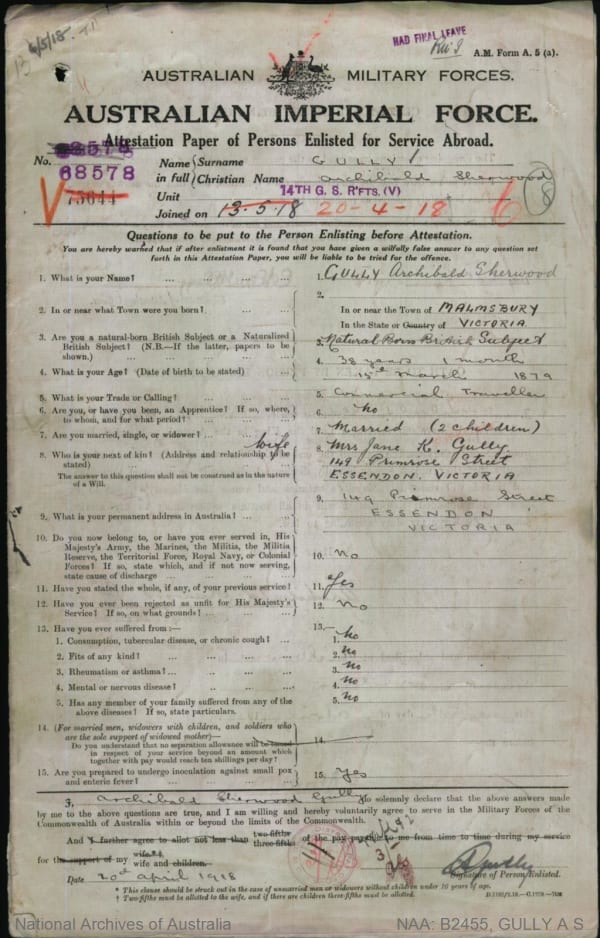 6/5/18.
HAD FINAL LEAVE
A.M. Form A. 5 (a).
AUSTRALIAN MILITARY FORCES.
AUSTRALIAN IMPERIAL FORCE.
Attestation Paper of Persons Enlisted for Service Abroad.
68578
No. 68578
75644
Name in full { Surname GULLY
Christian Name Archibald Sherwood
Unit 14TH G. S. R'FTS. (V)
Joined on 13.5.18 20-4-18
Questions to be put to the Person Enlisting before Attestation.
You are hereby warned that if after enlistment it is found that you have given a wilfully false answer to any question set
forth in this Attestation Paper, you will be liable to be tried for the offence.
1. What is your Name? ... ... ... 1. GULLY Archibald Sherwood
2. In or near what Town were you born? ... ... 2. In or near the Town of MALMSBURY
In the State or Country of VICTORIA
3. Are you a natural-born British Subject or a Naturalized
British Subject? (N.B.—If the latter, papers to be
shown.) ... ... 3. Natural Born British Subject
4. What is your Age? (Date of birth to be stated) ... 4. 38 years 1 month
15th March 1879
5. What is your Trade or Calling? ... ... 5. Commercial Traveller
6. Are you, or have you been, an Apprentice? If so, where,
to whom, and for what period? ... ... 6. No
7. Are you married, single, or widower? ... 7. Married (2 children)
8. Who is your next of kin? (Address and relationship to be
stated) wife 8. Mrs Jane K. Gully
149 Primrose Street
ESSENDON. VICTORIA
The answer to this question shall not be construed as in the nature
of a Will.
9. What is your permanent address in Australia? ... 9. 149 Primrose Street
ESSENDON
VICTORIA
10. Do you now belong to, or have you ever served in, His
Majesty's Army, the Marines, the Militia, the Militia
Reserve, the Territorial Force, Royal Navy, or Colonial
Forces? If so, state which, and if not now serving,
state cause of discharge ... 10. No
11. Have you stated the whole, if any, of your previous service? 11. Yes
12. Have you ever been rejected as unfit for His Majesty's
Service? If so, on what grounds? ... 12. No
13. Have you ever suffered from :— 13.—
1. Consumption, tubercular disease, or chronic cough? ... 1. No
2. Fits of any kind? ... 2. No
3. Rheumatism or asthma? ... 3. No
4. Mental or nervous disease? ... 4. No
5. Has any member of your family suffered from any of the
above diseases? If so, state particulars. 5. No
14. (For married men, widowers with children, and soldiers who
are the sole support of widowed mother)—
Do you understand that no separation allowance will be issued
in respect of your service beyond an amount which
together with pay would reach ten shillings per day? 14.
15. Are you prepared to undergo inoculation against small pox
and enteric fever? ... 15. Yes
I, Archibald Sherwood Gully do solemnly declare that the above answers made
by me to the above questions are true, and I am willing and hereby voluntarily agree to serve in the Military Forces of the
Commonwealth of Australia within or beyond the limits of the Commonwealth.
And I further agree to allot not less than two-fifths three-fifths of the pay payable to me from time to time during my service
for the support of my wife.*† wife and children.
Date 20th April 1918
Signature of Person Enlisted.
* This clause should be struck out in the case of unmarried men or widowers without children under 16 years of age.
† Two-fifths must be allotted to the wife, and if there are children three-fifths must be allotted.
National Archives of Australia
NAA: B2455, GULLY A S